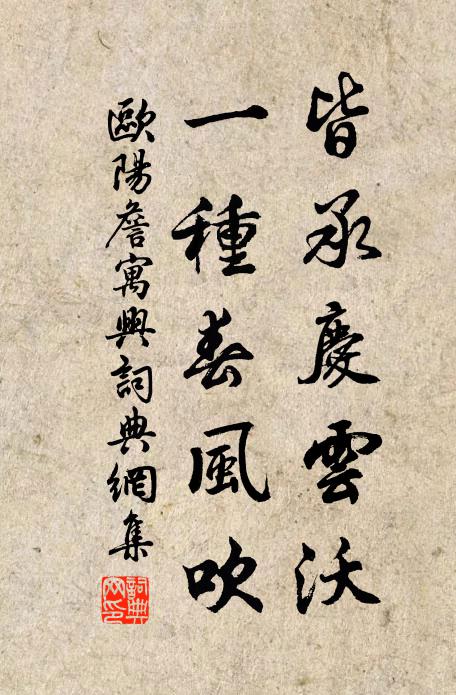 皆承慶雲沃
一種春風吹
歐陽詹寓興詞典網集
詞典網印